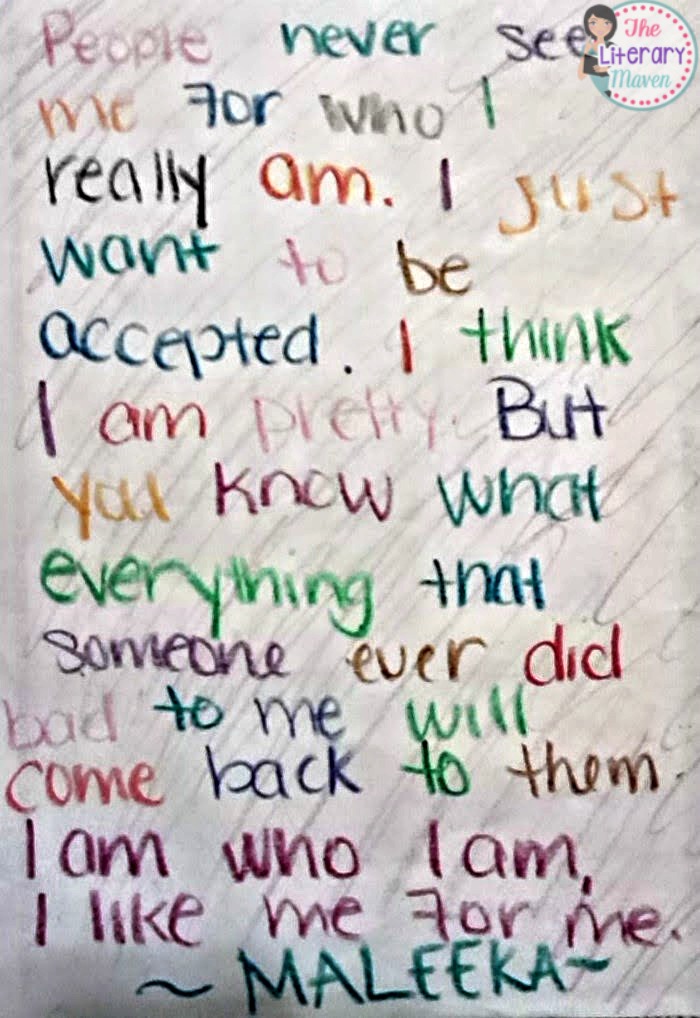 People never see
me for who I
really am. I just
want to be
accepted. I think
I am pretty. But
you know what
everything that
someone ever did
bad to me will
come back to them.
I am who I am,
I like me for me.
~ MALEEKA~
The
Literary
Maven